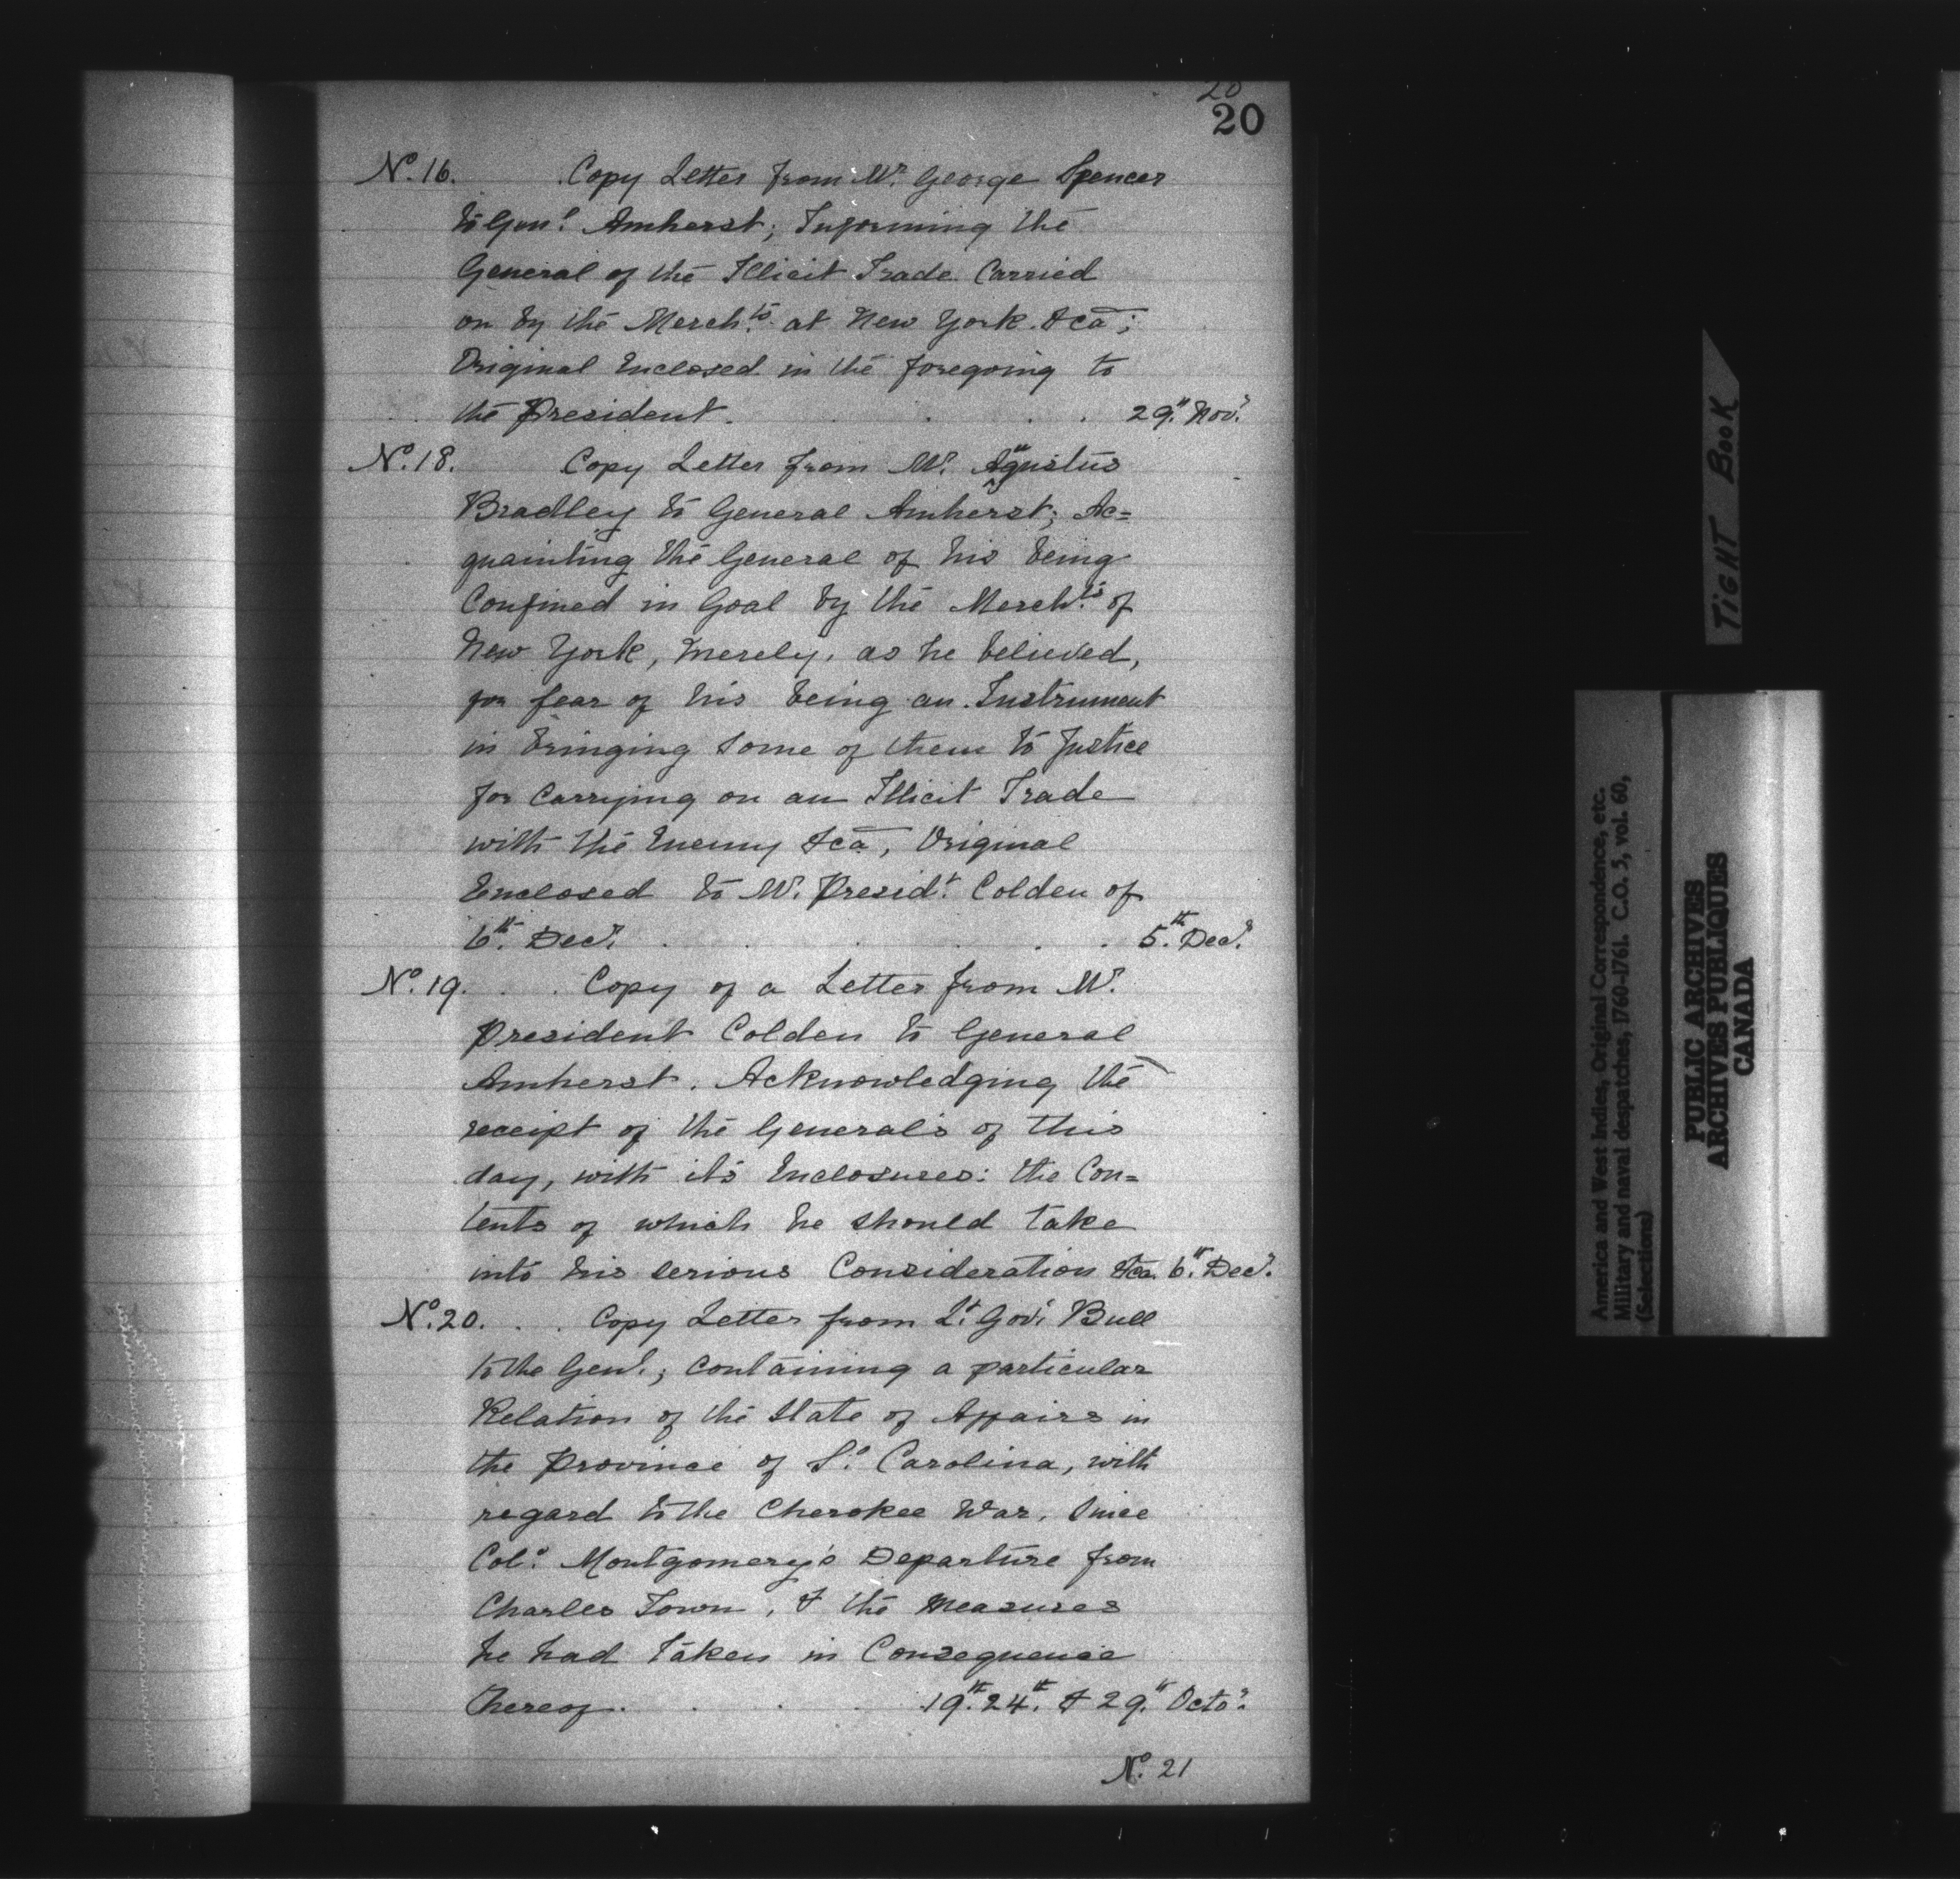 20
20
No. 16. Copy Letter from Mr. George Spencer
to Genl. Amherst; Informing the
General of the Illicit Trade Carried
on by the Mercht.s at New York. &ca;
Original Enclosed in the foregoing to
the President. . . . 29th. Novr.
No. 18. Copy Letter from Mr. Augustus
Bradley to General Amherst; Ac=
quainting the General of his being
Confined in Goal by the Mercht.s of
New York, merely, as he believed,
for fear of his being an Instrument
in bringing some of them to Justice
for Carrying on an Illicit Trade
with the Enemy &ca, Original
Enclosed to Mr. Presidt. Colden of
6th. Decr. . . . . . 5th. Decr.
No. 19. . . Copy of a Letter from Mr.
President Colden to General
Amherst. Acknowledging the
receipt of the General's of this
day, with it's Enclosures: the Con=
tents of which he should take
into his serious Consideration &ca. 6th. Decr.
No. 20. . . Copy Letter from Lt. Govr. Bull
to the Genl.; containing a particular
Relation of the State of Affairs in
the Province of So. Carolina, with
regard to the Cherokee War, Since
Colo. Montgomery's Departure from
Charles Town, & the Measures
he had taken in Consequence
thereof. . . . 19th. 24th. & 29th. Octor.
No. 21
TIGHT BOOK
America and West Indies, Original Correspondence, etc.
Military and naval despatches, 1760-1761. C.O. 5, vol. 60,
(Selections)
PUBLIC ARCHIVES
ARCHIVES PUBLIQUES
CANADA